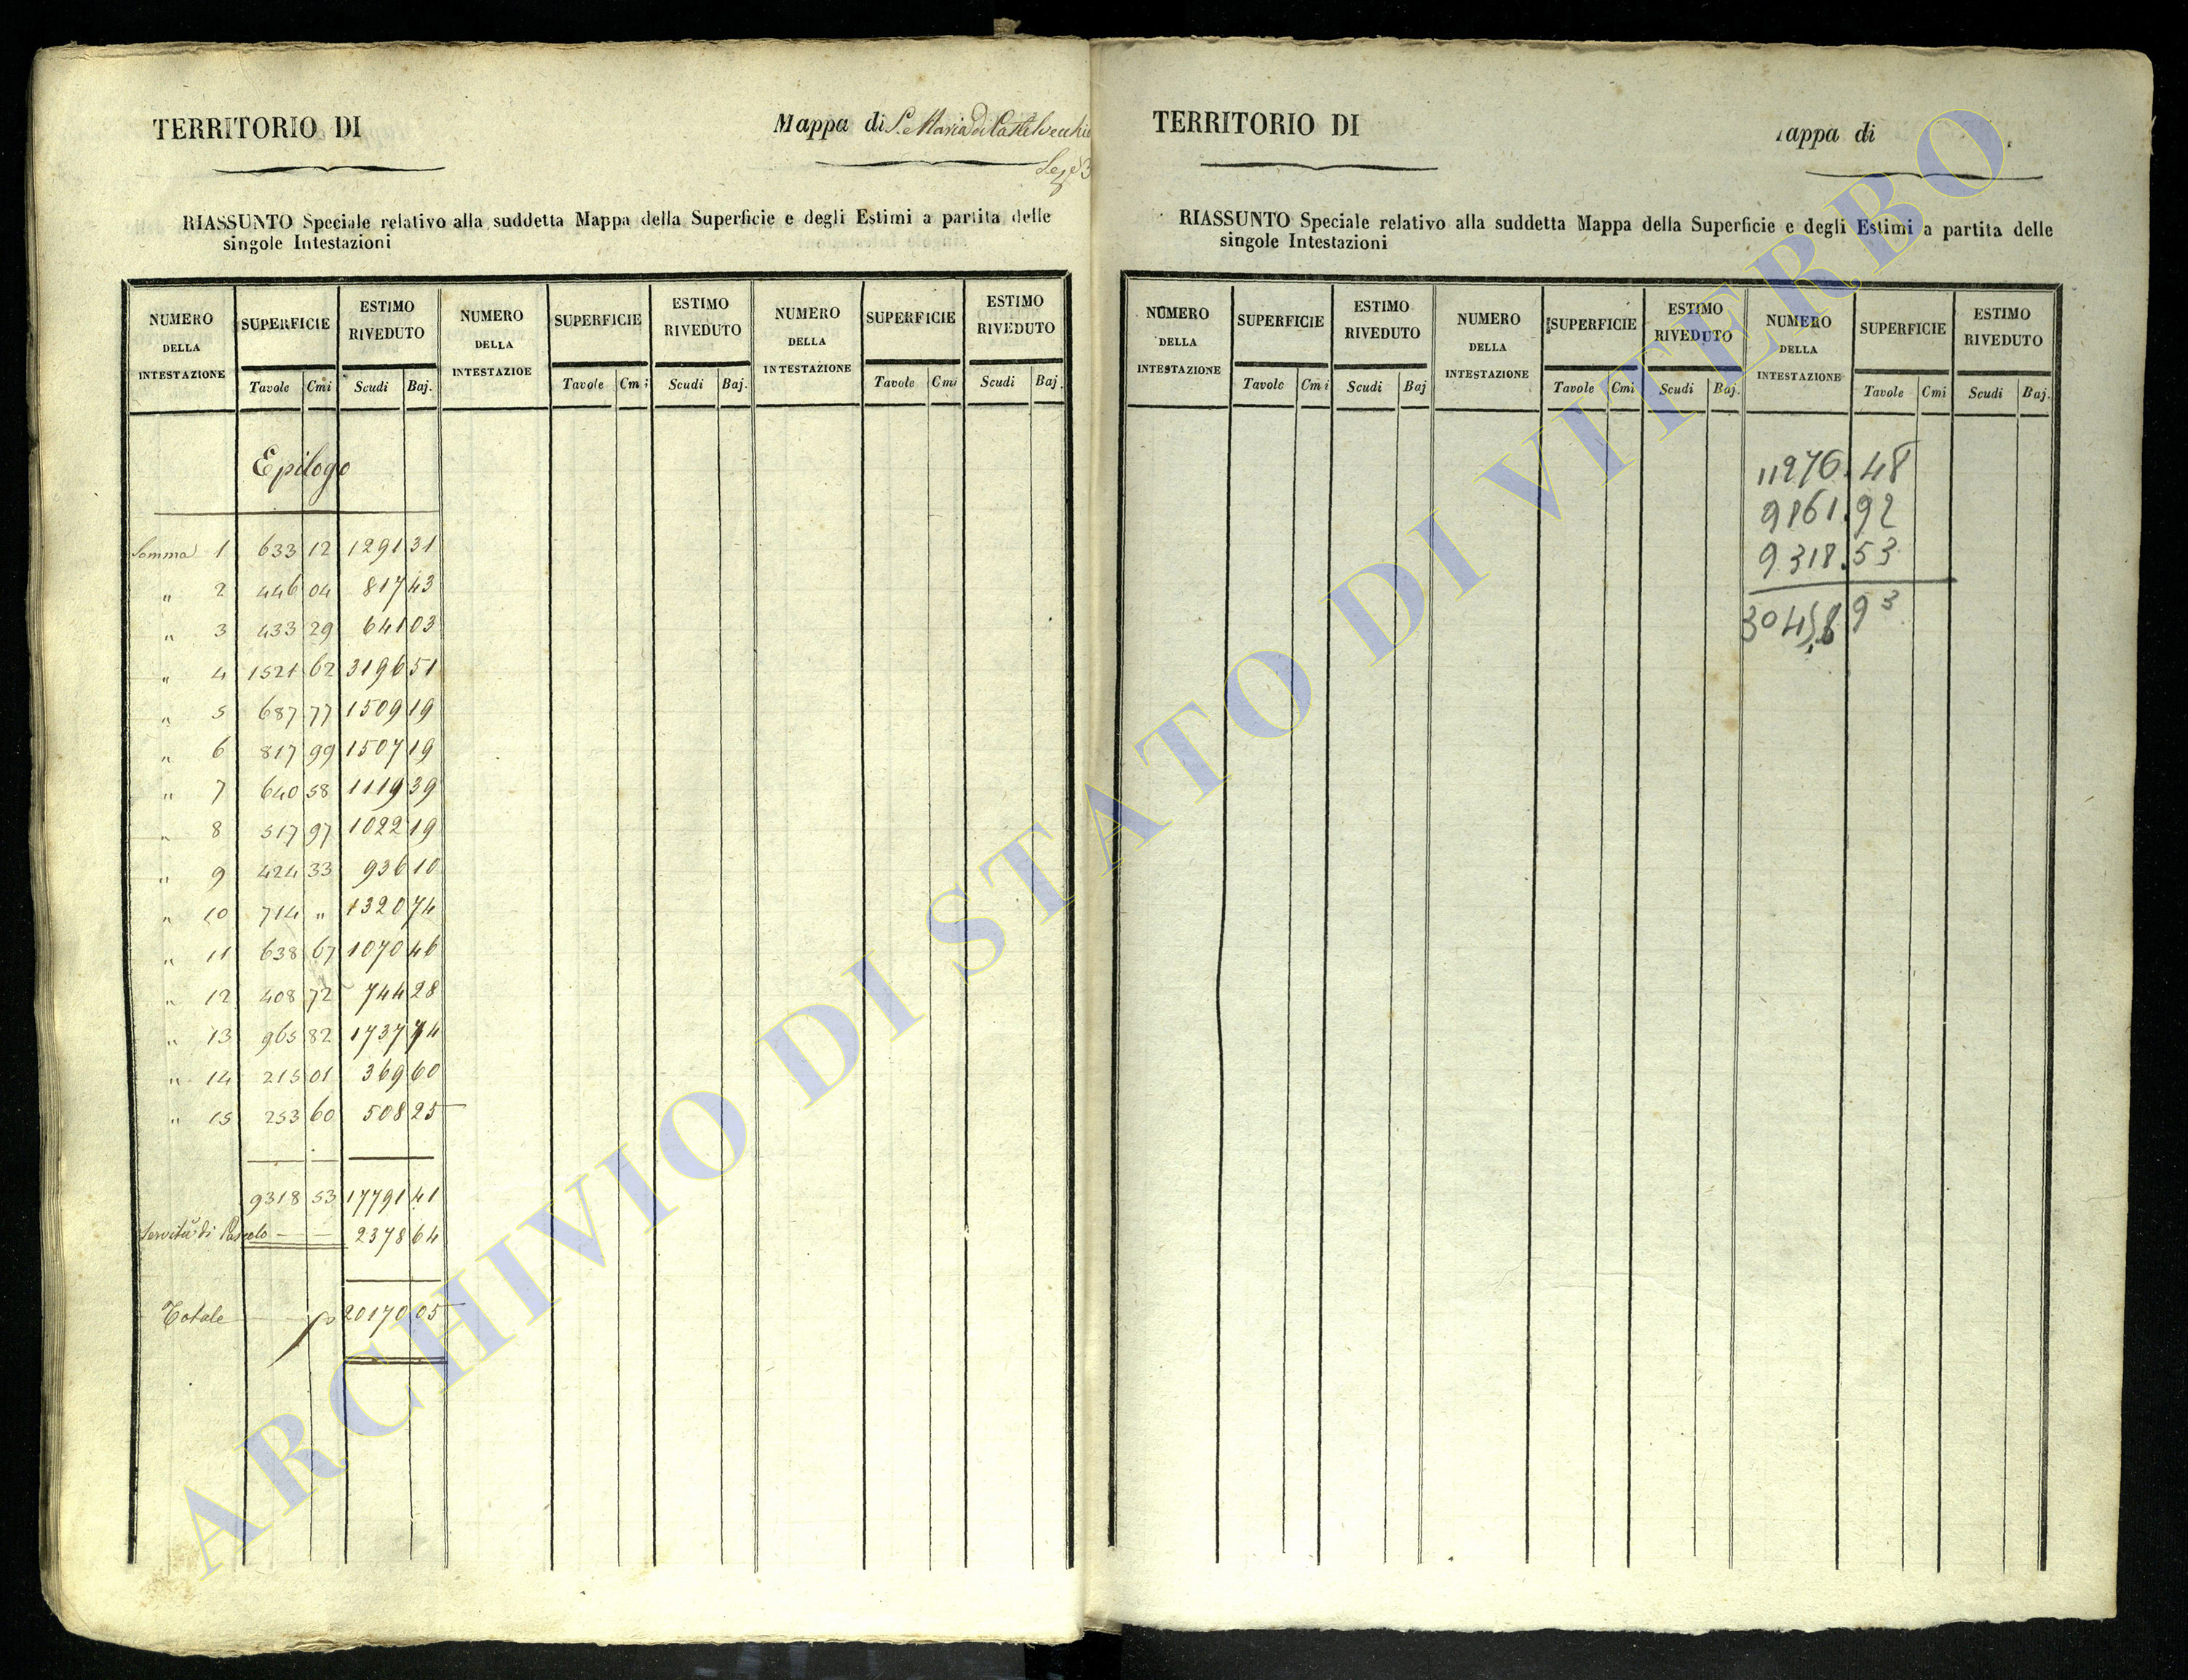 TERRITORIO DI
Mappa di S. Maria di Castelvecchio
Sez. 3
RIASSUNTO Speciale relativo alla suddetta Mappa della Superficie e degli Estimi a partita delle
singole Intestazioni
NUMERO DELLA INTESTAZIONE SUPERFICIE ESTIMO RIVEDUTO NUMERO DELLA INTESTAZIOE SUPERFICIE ESTIMO RIVEDUTO NUMERO DELLA INTESTAZIONE SUPERFICIE ESTIMO RIVEDUTO
Tavole Cmi Scudi Baj. Tavole Cmi Scudi Baj. Tavole Cmi Scudi Baj.
Epilogo
Somma 1 633 12 1291 31
" 2 446 04 817 43
" 3 433 29 641 03
" 4 1521 62 3196 51
" 5 687 77 1509 19
" 6 817 99 1507 19
" 7 640 58 1119 39
" 8 517 97 1022 19
" 9 424 33 936 10
" 10 714 " 1320 74
" 11 638 67 1070 46
" 12 408 72 744 28
" 13 965 82 1737 74
" 14 215 01 369 60
" 15 253 60 508 25
9318 53 17791 41
Servitù di Pascolo 2378 64
Totale 20170 05
TERRITORIO DI
appa di
RIASSUNTO Speciale relativo alla suddetta Mappa della Superficie e degli Estimi a partita delle
singole Intestazioni
NUMERO DELLA INTESTAZIONE SUPERFICIE ESTIMO RIVEDUTO NUMERO DELLA INTESTAZIONE SUPERFICIE ESTIMO RIVEDUTO NUMERO DELLA INTESTAZIONE SUPERFICIE ESTIMO RIVEDUTO
Tavole Cmi Scudi Baj Tavole Cmi Scudi Baj. Tavole Cmi Scudi Baj.
11276.48
9861.92
9318.53
30458 93
ARCHIVIO DI STATO DI VITERBO